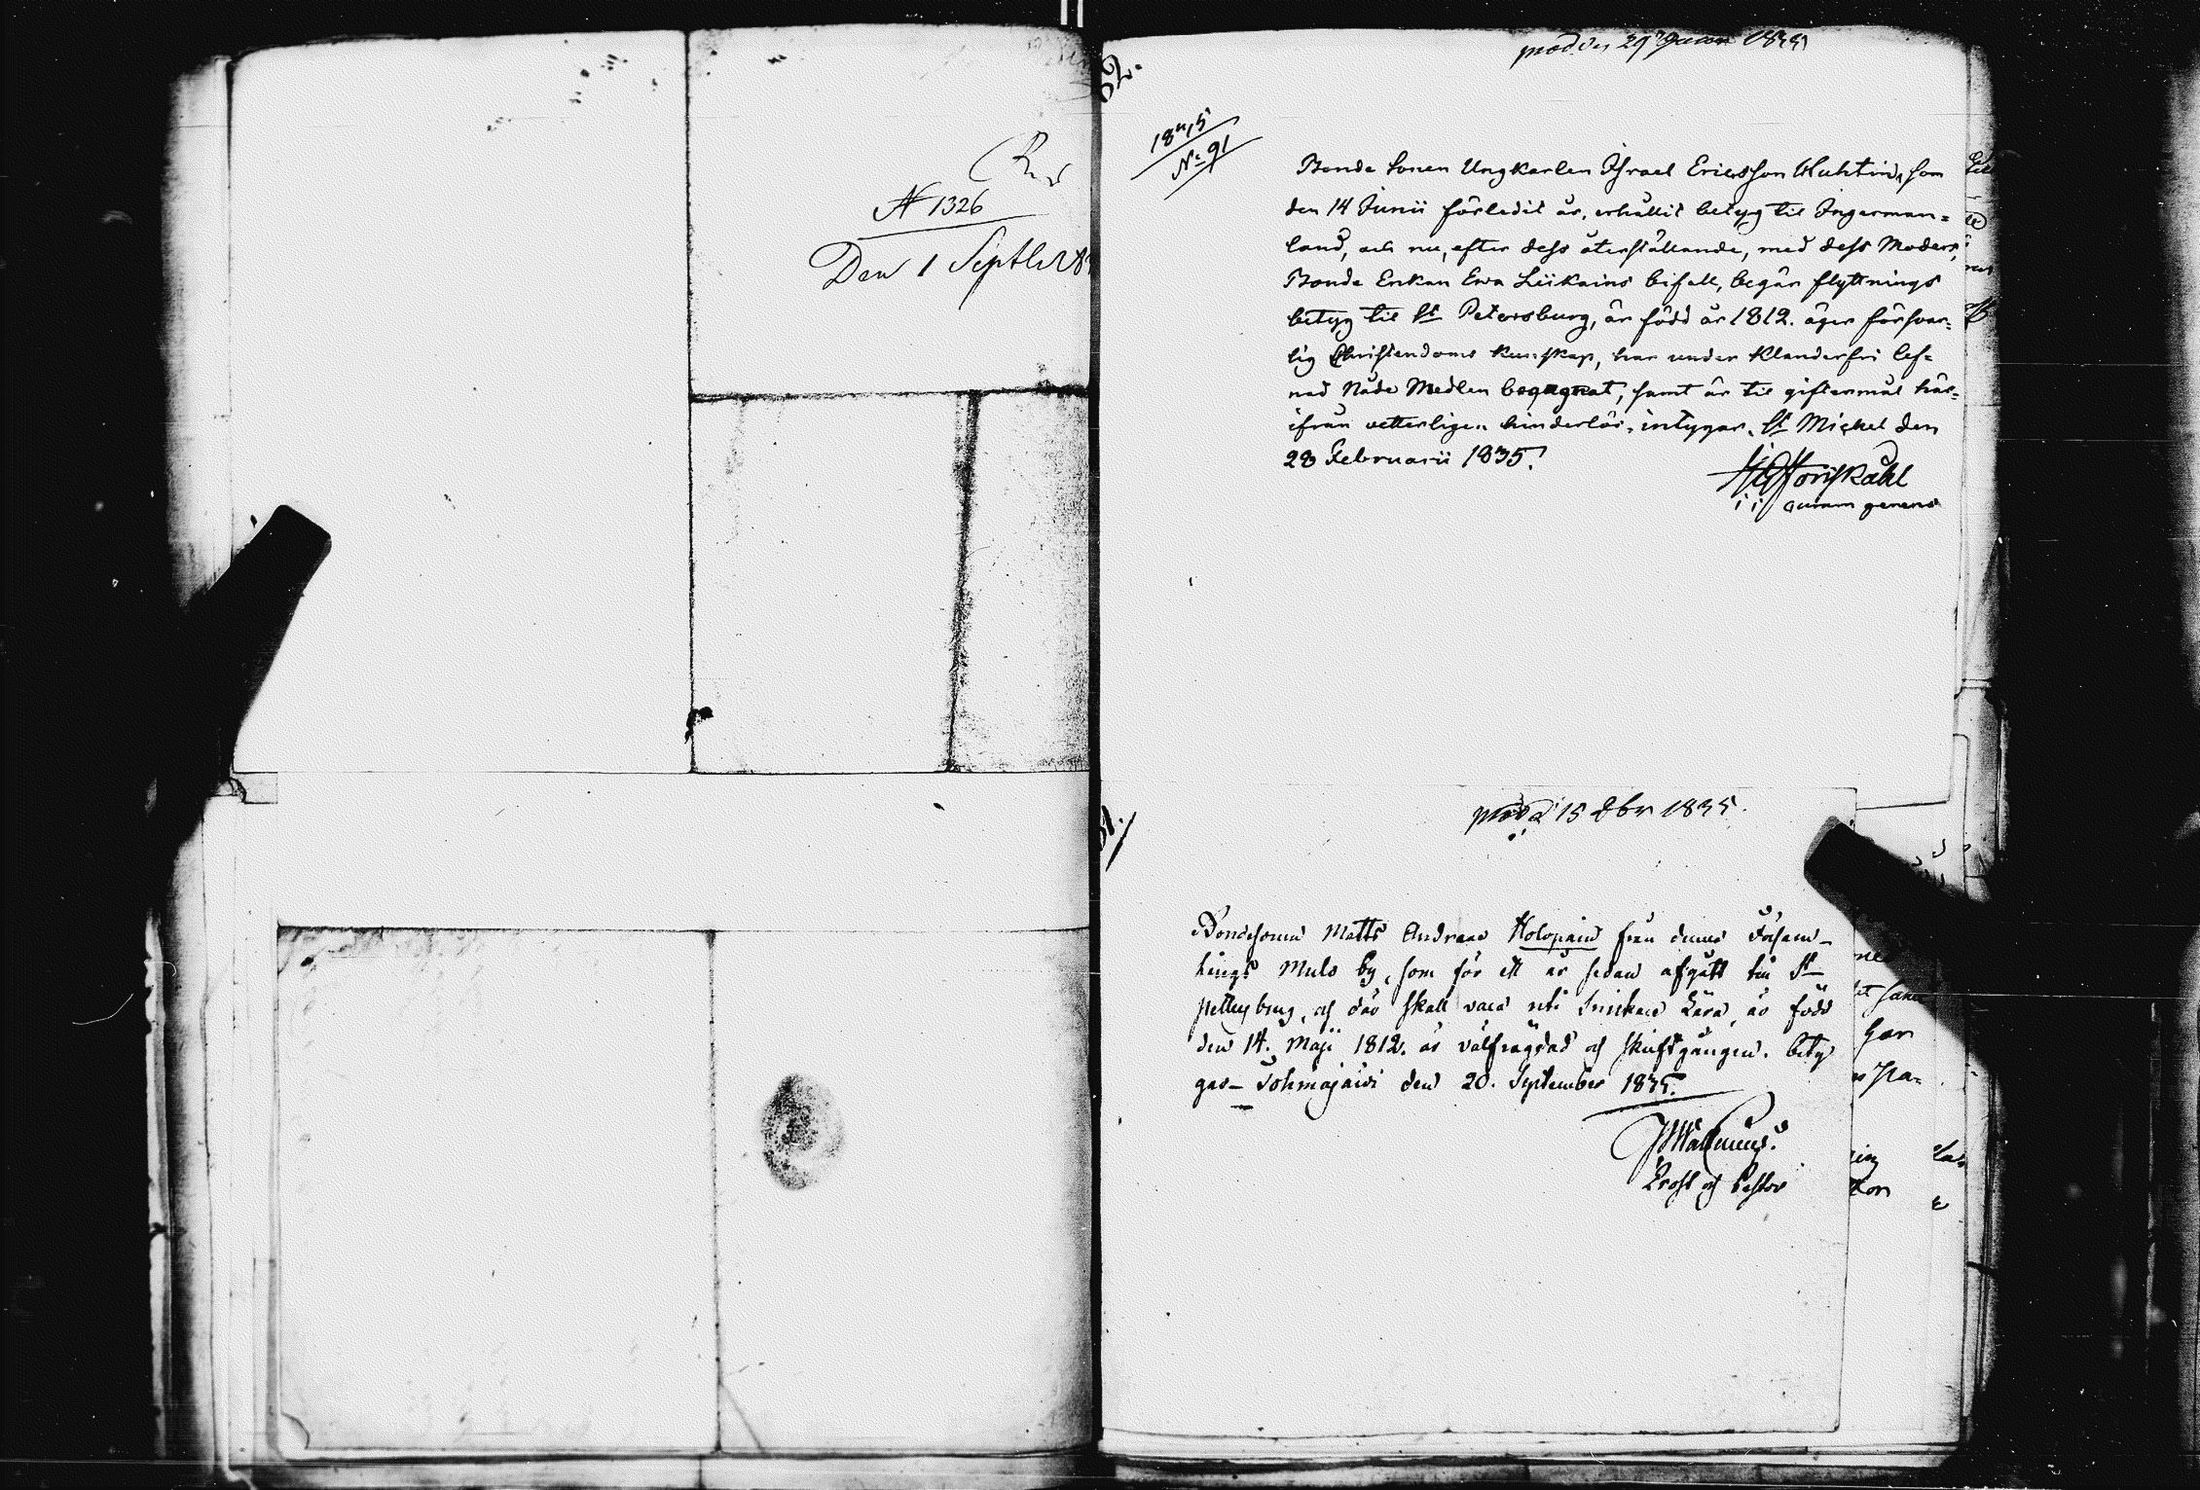 N 1326
Den 1 Septbr 18
52.
prod. den 29 1835
18 11/5
N: 91
Bonde Sonen Ungkarlen Israel Ericsson Kuhtin, som
den 14 Junii förledit år, erhållit betyg til Ingerman=
land, och nu, efter dess återställande, med dess Moders,
Bonde Enkan Ewa Liikains bifall, begär flyttnings
betyg til St Petersburg, är född år 1812. äger försvar=
lig Christendoms kunskap, har under klanderfri lef=
nad Nåde Medlen begagnat, samt är til giftermål här=
ifrån vetterligen hinderlös, intygar. St Michel den
28 Februarii 1835.
Forsskåhl
curam gerens
51.
prod. d 15 8br 1835.
Bondesonen Matts Andreas Kolopain från denna Försam-
lings Mulo by, som för ett år sedan afgått till St
Pettersburg, och där skall vara uti Snickare Lära, är född
den 14. Maji 1812. är välfrägdad och skriftgången. bety
gas_ Tohmajärvi den 20. September 1835.
JWallenius.
Prost och Pastor